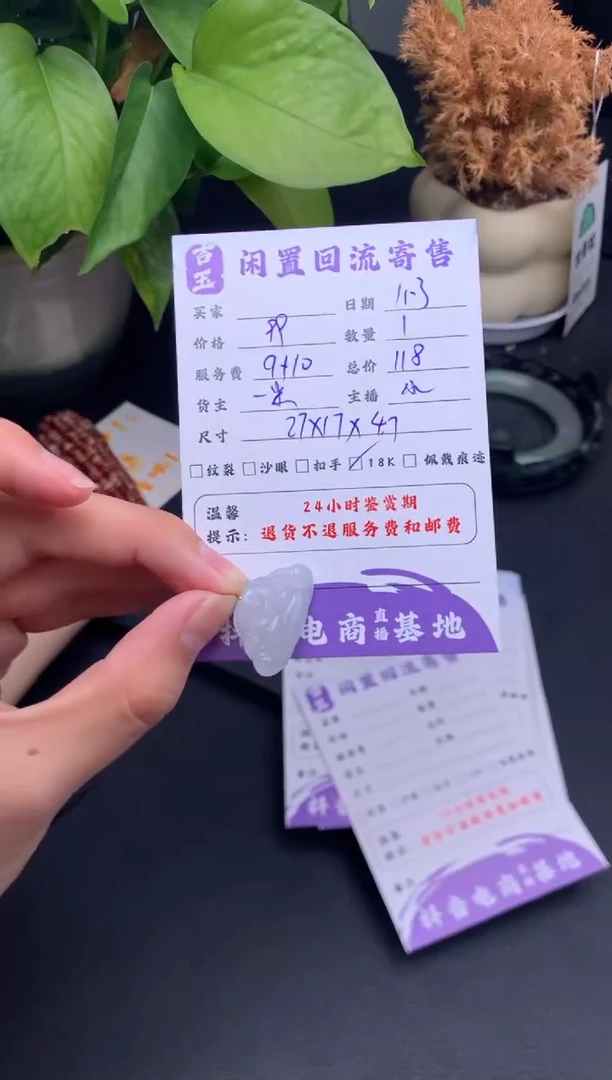 吉玉 闲置回流寄售
买家 日期 11.3
价格 99 数量 1
服务费 9+10 总价 118
货主 一米 主播
尺寸 27X17X47
纹裂 沙眼 扣手 18K 佩戴痕迹
温馨提示: 24小时鉴赏期
退货不退服务费和邮费
电商直播基地
闲置回流寄售
抖音电商 基地